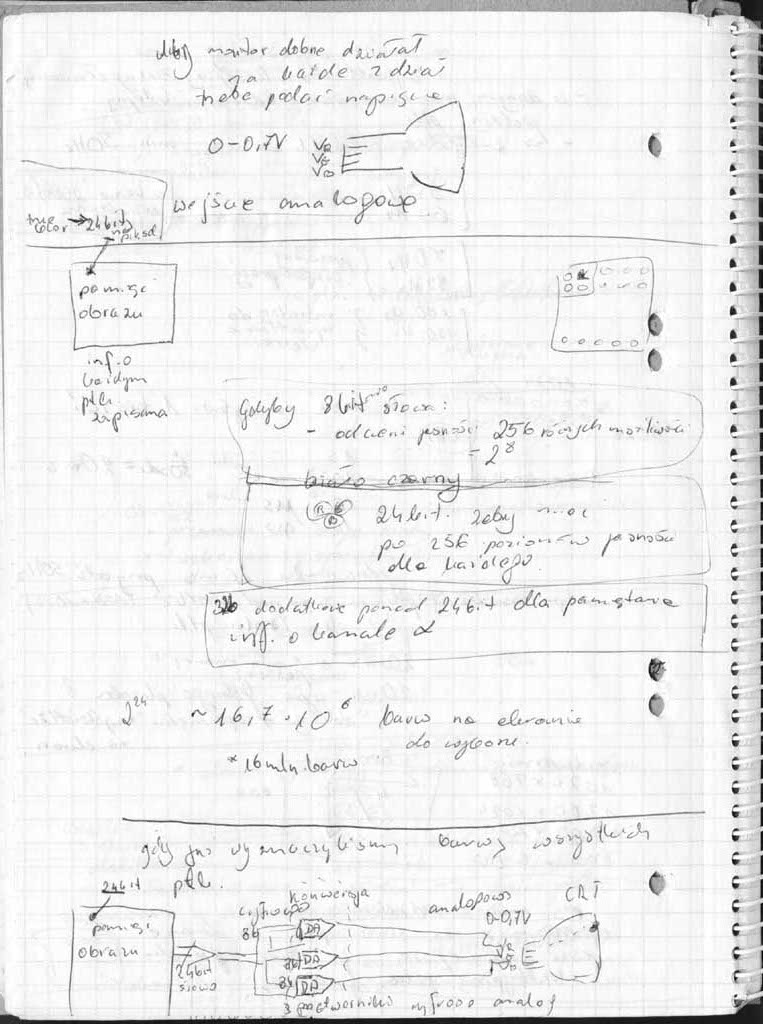 żeby monitor dobrze działał
za każde z dział
trzeba podać napięcie
0-0,7V
VR
VG
VB
wejście analogowe
true color → 24bity
na piksel
pamięć
obrazu
inf. o
każdym
pkt.
zapisana
Gdyby 8bit słowa:
- odcieni jasności 256 różnych możliwości
- 2⁸
biało czarny
R G B
24bit. żeby mieć
po 256 poziomów jasności
dla każdego.
32b dodatkowe ponad 24bit dla pamiętania
inf. o kanale α
2²⁴ ~16,7·10⁶ barw na ekranie
do wyboru.
*16mln. barw
gdy już wyznaczyliśmy barwy wszystkich
pkt.
24bit
pamięć
obrazu
24bit
słowo
cyfrowo
konwersja
analogowo
0-0,7V
CRT
8b DA
8b DA
8b DA
VR
VG
VB
3 przetworniki cyfrowo analog